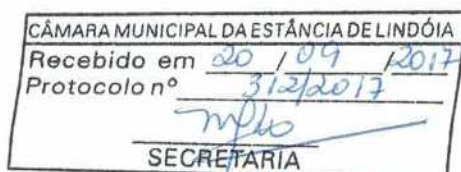 CÂMARA MUNICIPAL DA ESTÂNCIA DE LINDÓIA
Recebido em 20 / 09 / 2017
Protocolo nº 312/2017
SECRETARIA